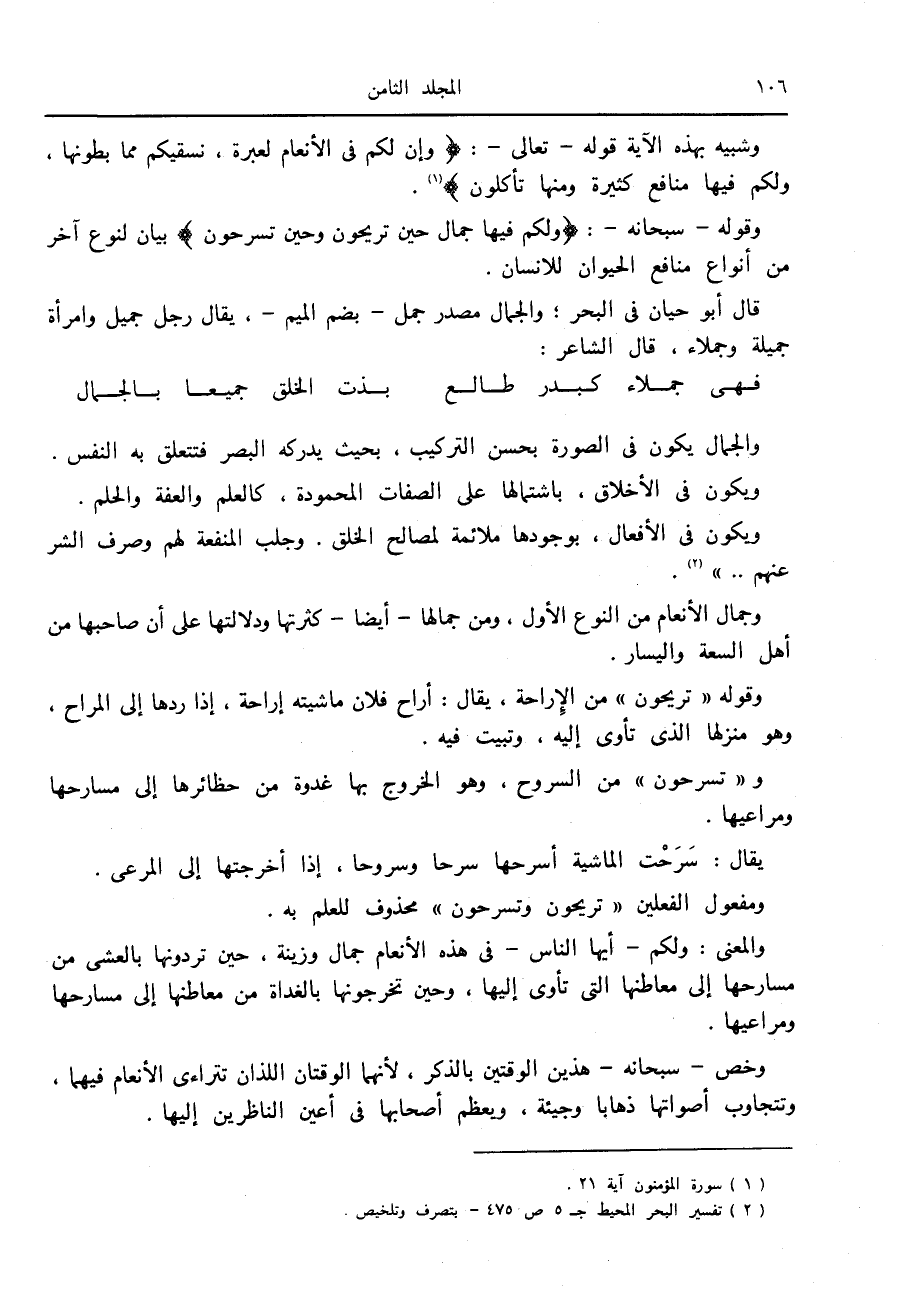 ١٠٦ المجلد الثامن
وشبيه بهذه الآية قوله - تعالى - : ﴿ وإن لكم فى الأنعام لعبرة ، نسقيكم مما بطونها ،
ولكم فيها منافع كثيرة ومنها تأكلون ﴾(١) .
وقوله - سبحانه - : ﴿ولكم فيها جمال حين تريحون وحين تسرحون ﴾ بيان لنوع آخر
من أنواع منافع الحيوان للانسان .
قال أبو حيان فى البحر ؛ والجمال مصدر جمل - بضم الميم - ، يقال رجل جميل وامرأة
جميلة وجملاء ، قال الشاعر :
فـهـى جمـلاء كـبـدر طـالـع بـذت الخلق جميعـا بـالجـمال
والجمال يكون فى الصورة بحسن التركيب ، بحيث يدركه البصر فتتعلق به النفس .
ويكون فى الأخلاق ، باشتمالها على الصفات المحمودة ، كالعلم والعفة والحلم .
ويكون فى الأفعال ، بوجودها ملائمة لمصالح الخلق . وجلب المنفعة لهم وصرف الشر
عنهم .. » (٢) .
وجمال الأنعام من النوع الأول ، ومن جمالها - أيضا - كثرتها ودلالتها على أن صاحبها من
أهل السعة واليسار .
وقوله « تريحون » من الإِراحة ، يقال : أراح فلان ماشيته إراحة ، إذا ردها إلى المراح ،
وهو منزلها الذى تأوى إليه ، وتبيت فيه .
و « تسرحون » من السروح ، وهو الخروج بها غدوة من حظائرها إلى مسارحها
ومراعيها .
يقال : سَرَحْت الماشية أسرحها سرحا وسروحا ، إذا أخرجتها إلى المرعى .
ومفعول الفعلين « تريحون وتسرحون » محذوف للعلم به .
والمعنى : ولكم - أيها الناس - فى هذه الأنعام جمال وزينة ، حين تردونها بالعشى من
مسارحها إلى معاطنها التى تأوى إليها ، وحين تخرجونها بالغداة من معاطنها إلى مسارحها
ومراعيها .
وخص - سبحانه - هذين الوقتين بالذكر ، لأنهما الوقتان اللذان تتراءى الأنعام فيهما ،
وتتجاوب أصواتها ذهابا وجيئة ، ويعظم أصحابها فى أعين الناظرين إليها .
( ١ ) سورة المؤمنون آية ٢١ .
( ٢ ) تفسير البحر المحيط جـ ٥ ص ٤٧٥ - بتصرف وتلخيص .